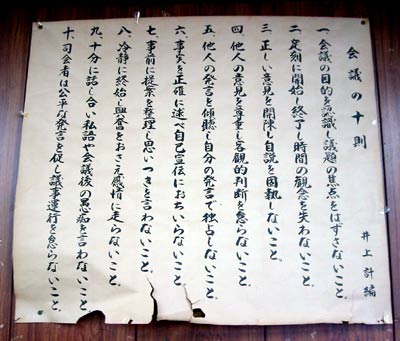 会議の十則
井上計編
一、会議の目的を認識し議題の焦点をはずさないこと。
二、定刻に開始し終了し時間の観念を失わないこと。
三、正しい意見を開陳し自説を固執しないこと。
四、他人の意見を尊重し客観的判断を怠らないこと。
五、他人の発言を傾聴し自分の発言で独占しないこと。
六、事実を正確に述べ自己宣伝におちいらないこと。
七、事前に提案を整理し思いつきを言わないこと。
八、冷静に終始し興奮をおさえ感情に走らないこと。
九、十分に話し合い私語や会議後の愚痴を言わないこと。
十、司会者は公平な発言を促し議事運行を怠らないこと。